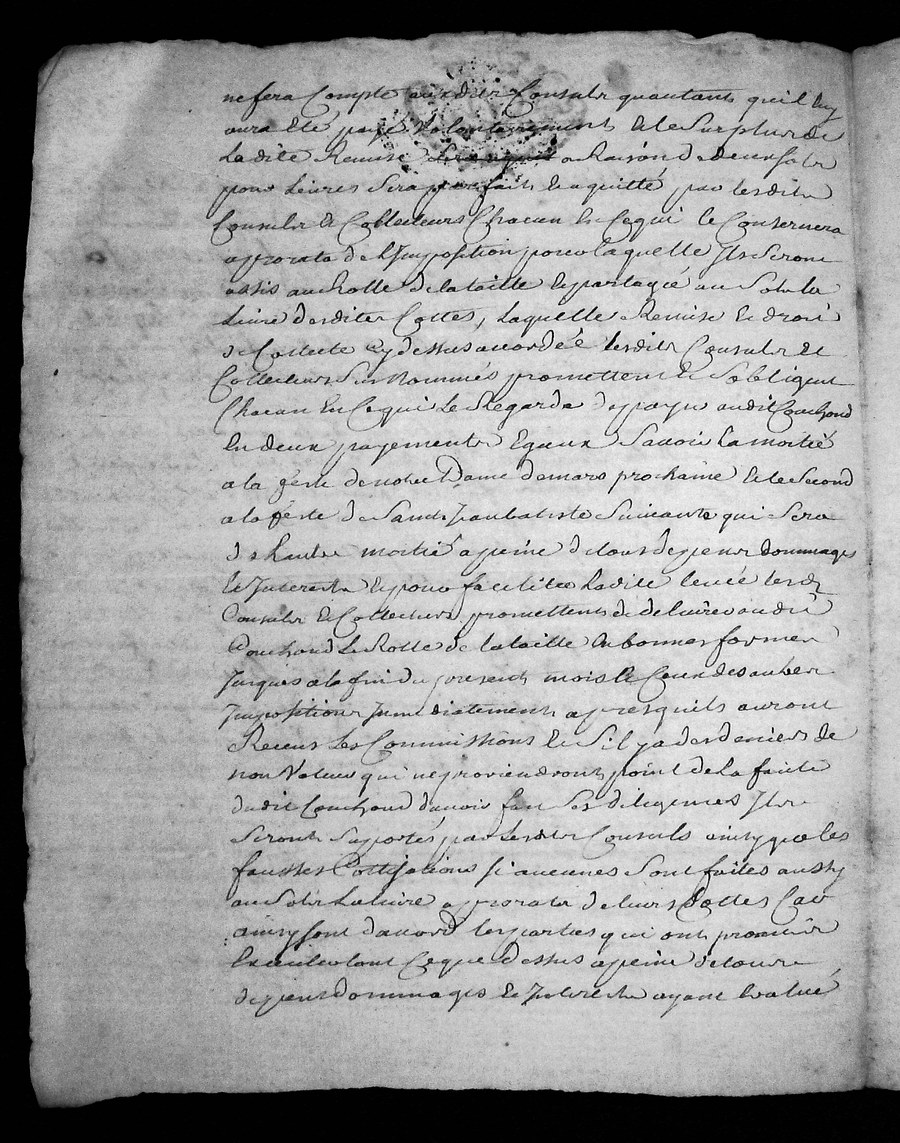 ne fera Compte auxdits Consuls qu'autant qu'il luy
aura été payé Volontairement Et le Surplus de
Ladite Remise a Raison de deux sols
pour Livres Sera parfait Et aquitté par lesdits
Consuls Et Collecteurs Chacun En Cequi le Conservera
aprorata de L'Imposition pour laquelle Ils Seront
assis au Rolle de la taille Et partagée au Sol la
Livre desdites Cottes, Laquelle Remise Et droit
de Collecte Cy dessus accordée lesdits Consuls Et
Collecteurs Susnommés promettent Et Sobligent
Chacun En Cequi Le Regarde de payer audit Couchond
En deux payements Egaux Savoir La moitié
a la feste de notre Dame de mars prochaine Et le Second
a la feste de Saint Jean batiste Suivante qui Sera
de Lautre moitié a peine de tous depens dommages
Et Interests Et pour faciliter Ladite levée lesd
Consuls Et Collecteurs promettent de delivrer audit
Couchond Le Rolle de la taille En bonnes formes
Jusques a la fin du present mois Et Ceux des autres
Impositions Immediatement apres quils auront
Receus Les Commissions Et Sil ya des deniers de
non Valeur qui ne proviendront point de La faute
dudit Couchond davoir fait Ses diligences Ils
Seront Suportés par Lesdits Consuls ainsy que les
fausses Cottisations Si aucunes Sont faites aussy
au Sol la Livre aprorata de leurs Cottes Car
ainsy sont daccord les parties qui ont promis
Executer tout Ceque Dessus a peine de tous
depens Dommages Et Interests ayant Evalué